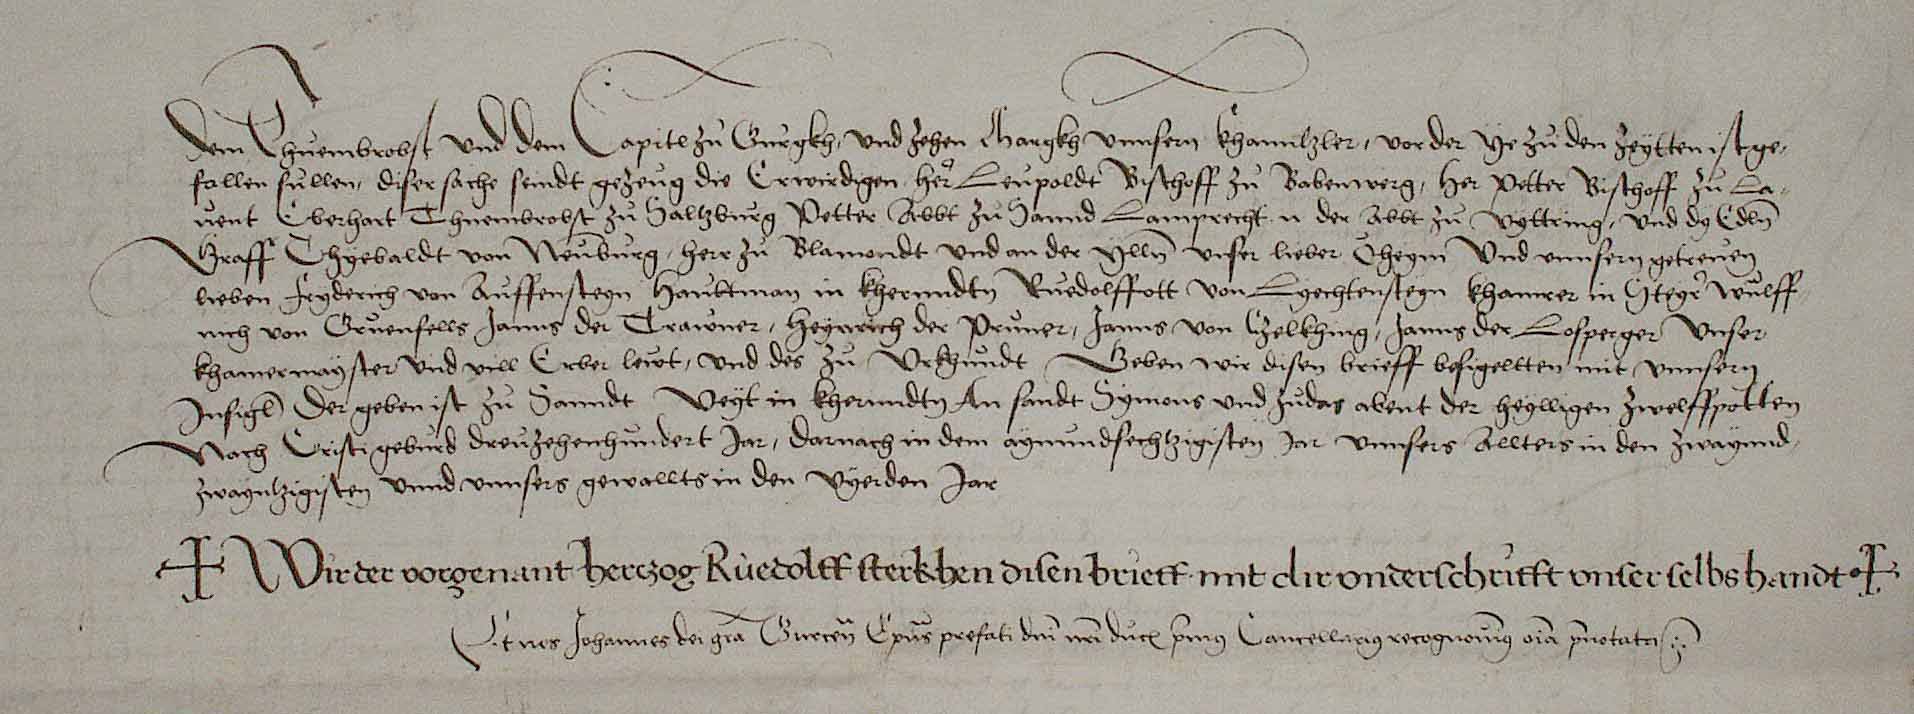 dem Thuembrobst und dem Capitl zu Gurgkh, und zehen Margkh unnsern Khanntzler, vor der ye zu den zeytten ist ge-
fallen sullen, diser sache seindt gezeug die Erwirdigen, her Leupoldt Bischoff zu Babenwerg, Her Petter Bischoff zu La-
uent Eberhart Thuembrobst zu Saltzburg Petter Abbt zu Sannd Lamprecht n der Abbt zu Vyttring, und dy Edln
Graff Thyebaldt von Neunburg, herr zu Blamondt und an der Ylln unser lieber Oheym Und unnsern getreuen
lieben Fryderich von Auffensteyn Haubtman in Kherndtn Ruedolff ott von Lyechtensteyn khamrer in Steyr Wulff-
nich von Gruenfells Janns der Trawner, Heynrich der Pruner, Janns von Czelkhing, Janns der Losperger Unser
khamermayster Und vill Erber lewt, und des zu Urkhundt Geben wir disen brieff besigeltten mit unnsern
Insigl Der geben ist zu Sanndt Veyt in kherndtn An sandt Symons und Judas abent der heylligen zwelffpotten
Nach Cristi geburd dreuzehenhundert Jar, darnach in dem aynundsechtzigisten Jar unnsers Allters in den zwaynnd-
zwayntzigisten unnd unnsers gewallts in den Vyerden Jar
Wir der vorgenant herczog Ruedolff sterkhen disen brieff mit dir underschrifft unser selbs handt
Et nos Johannes dei gra Gurcen Epus prefati dni nri ducx pmus Cancellarius recognouim9 oia pnotata